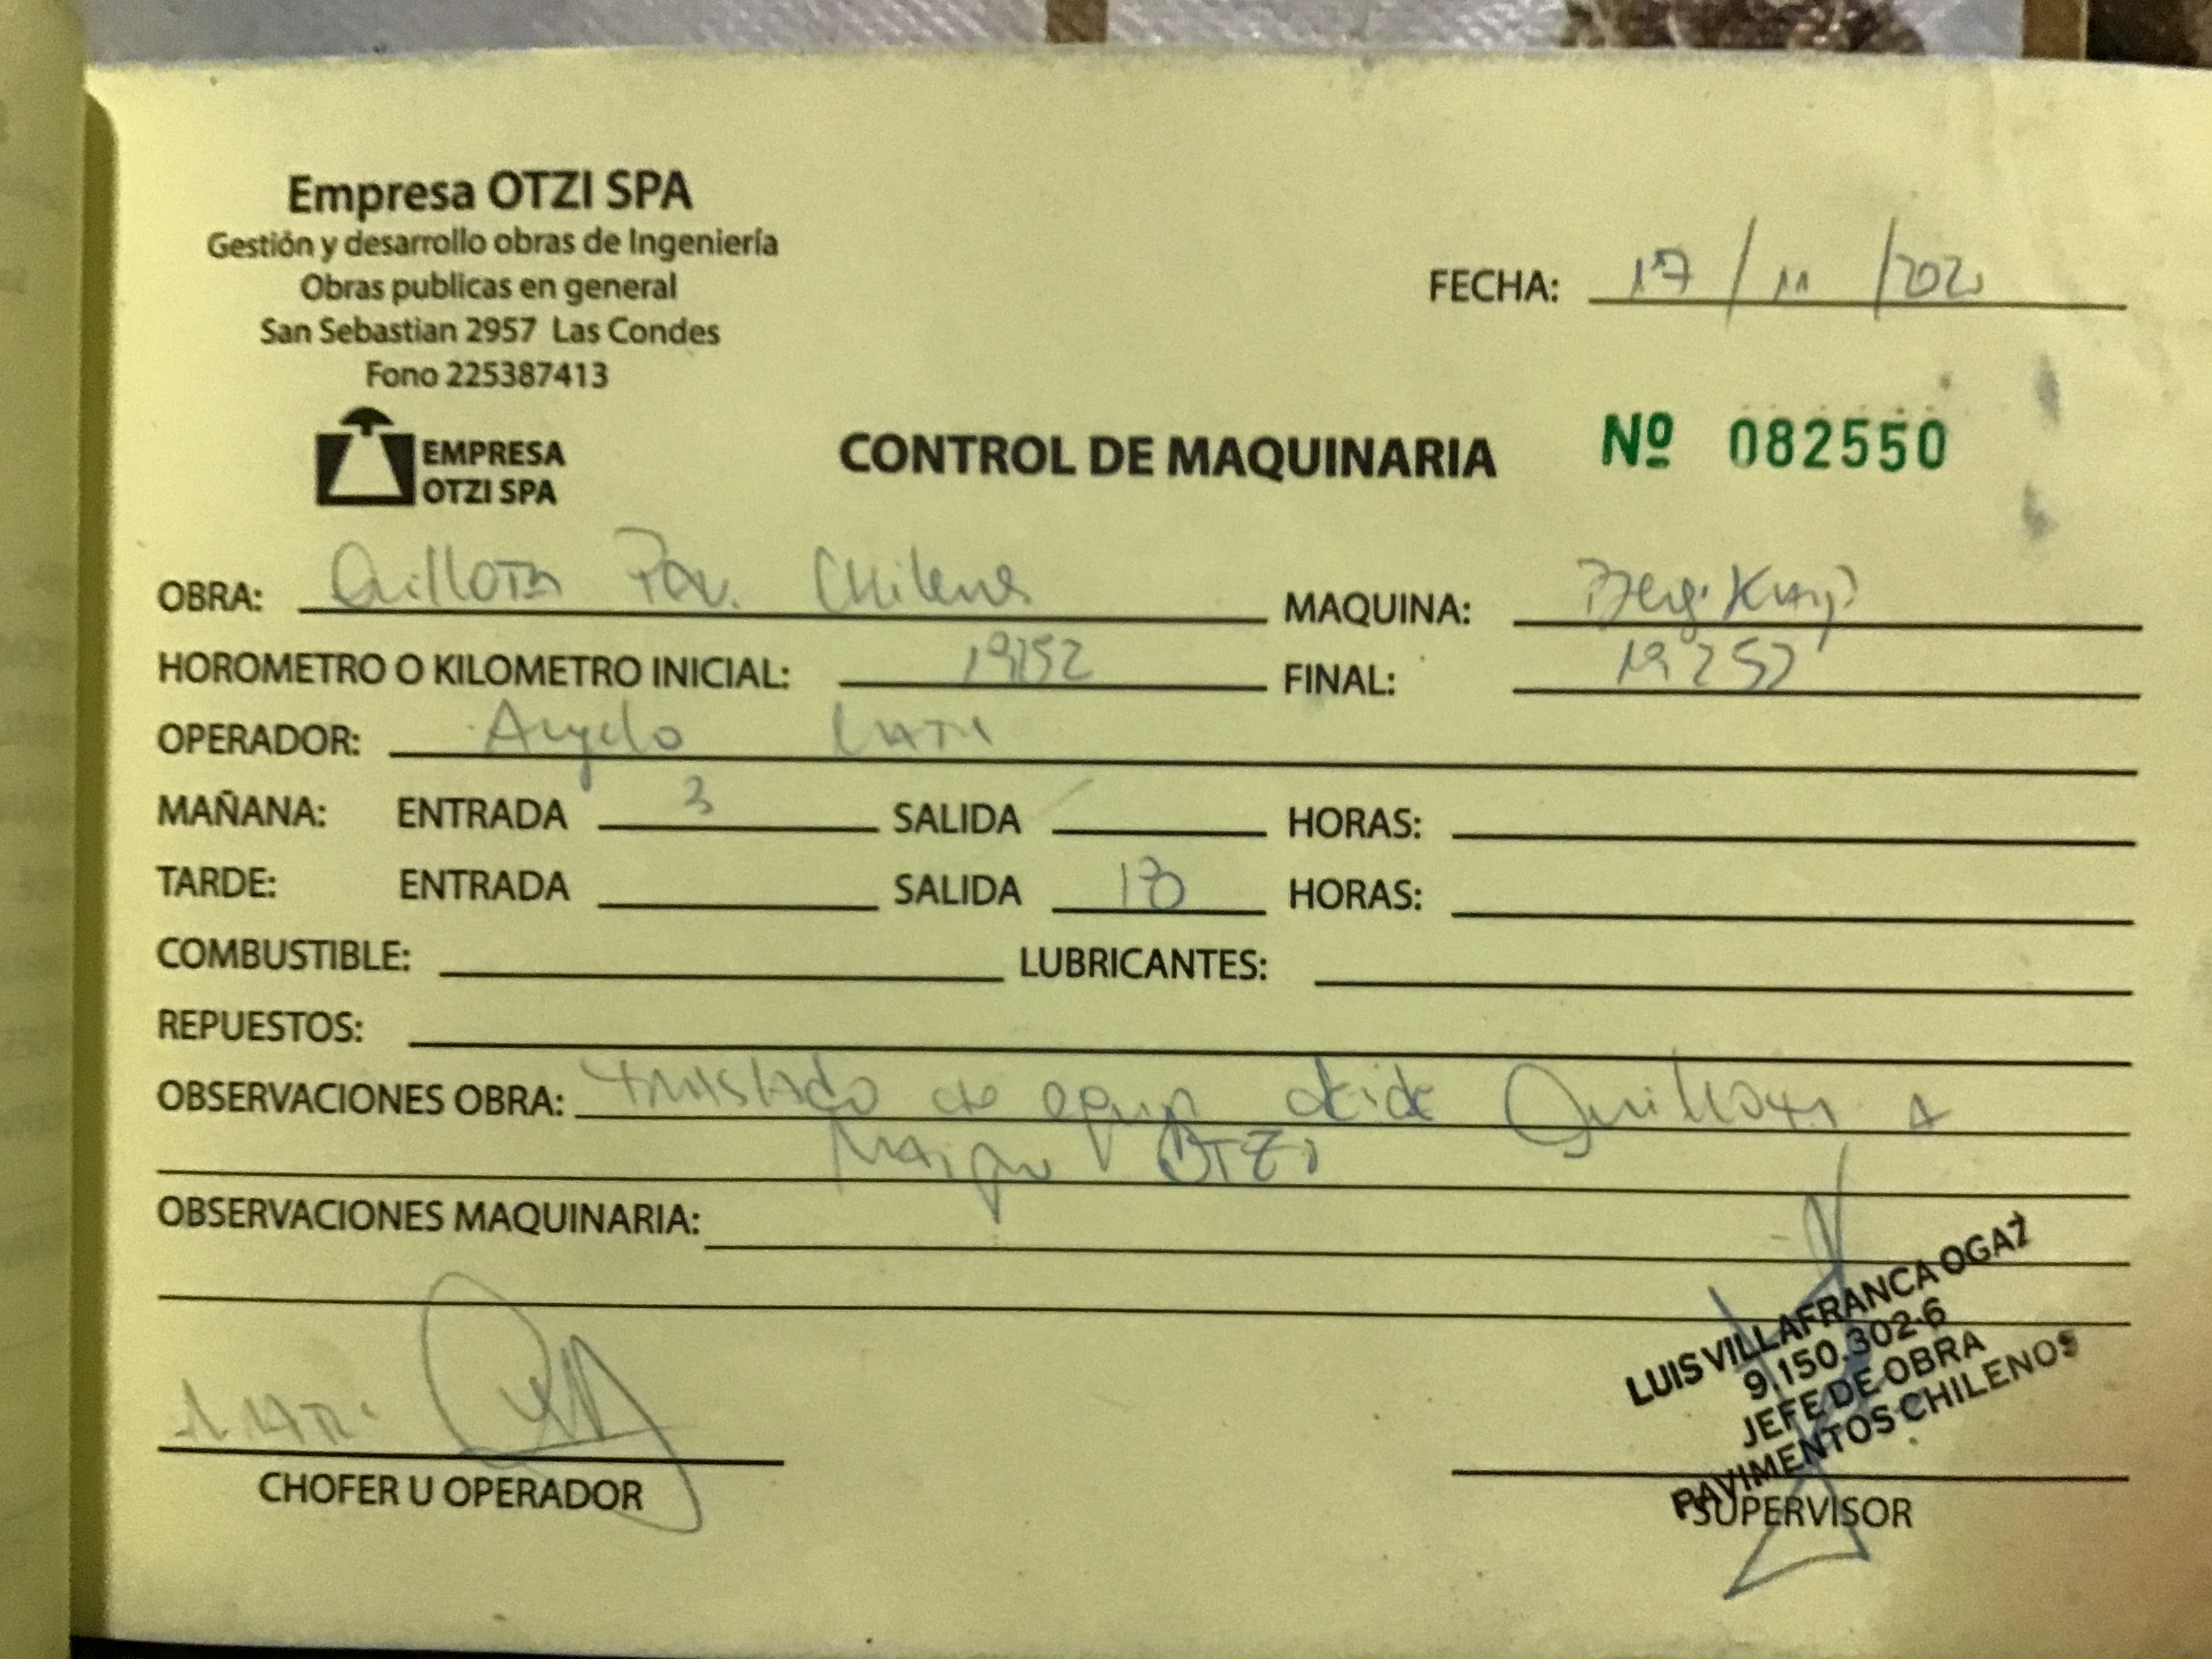 Empresa OTZI SPA
Gestión y desarrollo obras de Ingeniería
Obras publicas en general
San Sebastian 2957 Las Condes
Fono 225387413
FECHA: 17 / 11 / 202
EMPRESA
OTZI SPA
CONTROL DE MAQUINARIA Nº 082550
OBRA: Quillota Pav. Chilenos MAQUINA:
HOROMETRO O KILOMETRO INICIAL: 19152 FINAL: 19257
OPERADOR: Angelo
MAÑANA: ENTRADA 3 SALIDA HORAS:
TARDE: ENTRADA SALIDA 18 HORAS:
COMBUSTIBLE: LUBRICANTES:
REPUESTOS:
OBSERVACIONES OBRA: traslado de equip desde Quillota A
Maipu OTZi
OBSERVACIONES MAQUINARIA:
CHOFER U OPERADOR
LUIS VILLAFRANCA OGAZ
9.150.302-6
JEFE DE OBRA
PAVIMENTOS CHILENOS
SUPERVISOR